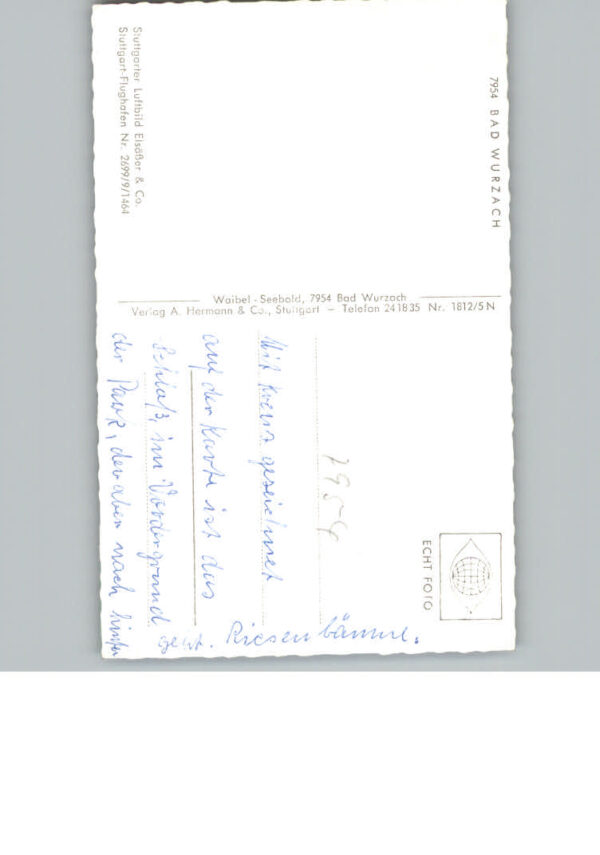 7954 BAD WURZACH
Stuttgarter Luftbild Elsäßer & Co.
Stuttgart-Flughafen Nr. 2699/9/1464
Waibel-Seebold, 7954 Bad Wurzach
Verlag A. Hermann & Co., Stuttgart — Telefon 241835 Nr. 1812/5N
ECHT FOTO
7954
Mit Kreuz gezeichnet
auf der Karte ist das
Schloß, im Vordergrund
der Park, der aber nach hinten
geht. Riesenbäume.